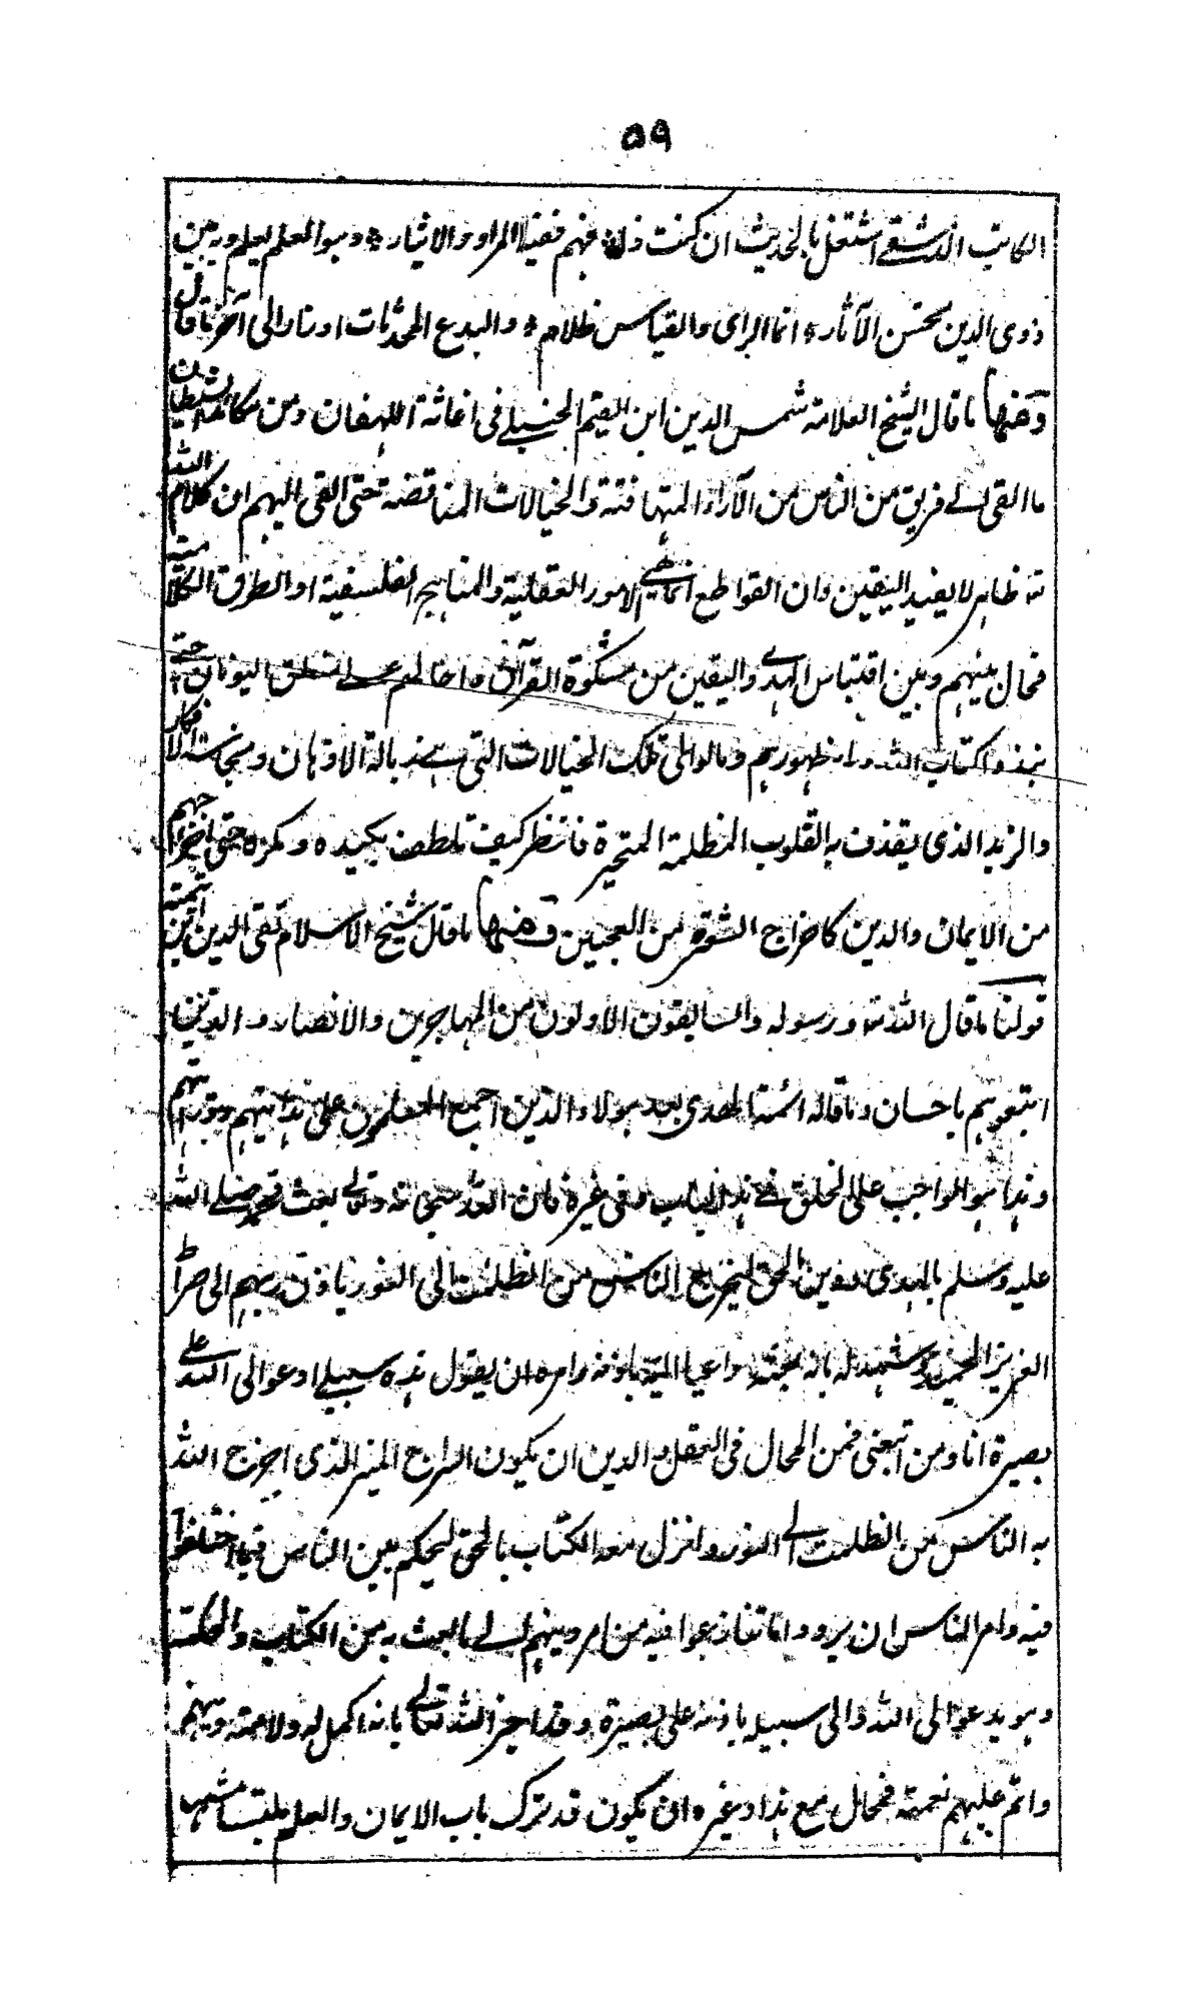 ٥٩
الكاتب الدمشقي اشتغل بالحديث ان كنت ذا فهم ففيه المراد والايثار ۞ وهو المعلم يعلم وبه يبين
ذوى الدين بحسن الآثار ۞ انما الراى والقياس ظلام ۞ والبدع المحدثات اوزار الى آخر ما قال
ومنها ما قال الشيخ العلامة شمس الدين ابن القيم الحنبلي في اغاثة اللهفان ومن مكائد الشيطان
ما القى الى فريق من الناس من الآراء المتهافتة والخيالات المتناقضة حتى القى اليهم ان كلام الله
تع ظاهر لا يفيد اليقين وان القواطع انما هي الامور العقلية والمناهج الفلسفية او الطرق الكلامية
فحال بينهم وبين اقتباس الهدى واليقين من مشكوة القرآن واحالهم على منطق اليونان حتى
نبذوا كتاب الله وراء ظهورهم ومالوا الى تلك الخيالات التي هي زبالة الاذهان ونجاسة الافكار
والزبد الذى يقذف به القلوب المظلمة المتحيرة فانظر كيف تلطف بكيده ومكره حتى اخراجهم
من الايمان والدين كاخراج الشعرة من العجين ومنها ما قال شيخ الاسلام تقى الدين ابن تيمية
قولنا ما قال الله تع ورسوله والسابقون الاولون من المهاجرين والانصار والذين
اتبعوهم باحسان وما قاله ائمة الهدى بعد هولاء الذين اجمع المسلمون على هدايتهم ودرايتهم
وهذا هو الواجب على الخلق في هذا الباب وفي غيره فان الله سبحانه وتعالى بعث محمدا صلى الله
عليه وسلم بالهدى ودين الحق ليخرج الناس من الظلمت الى النور باذن ربهم الى صراط
العزيز الحميد وشهد له بانه بعثه داعيا اليه باذنه وامره ان يقول هذه سبيلي ادعوا الى الله على
بصيرة انا ومن اتبعنى فمن المحال في العقل والدين ان يكون السراج المنير الذى اخرج الله
به الناس من الظلمت الى النور وانزل معه الكتاب بالحق ليحكم بين الناس فيما اختلفوا
فيه وامر الناس ان يردوا ما تنازعوا فيه من امر دينهم الى ما بعث به من الكتاب والحكمة
وهو يدعوا الى الله والى سبيله باذنه على بصيرة وقد اخبر الله تعالى بانه اكمل له ولامته دينهم
واتم عليهم نعمته فمحال مع هذا وغيره ان يكون قد ترك باب الايمان والعلم ملتبسا مشتبها